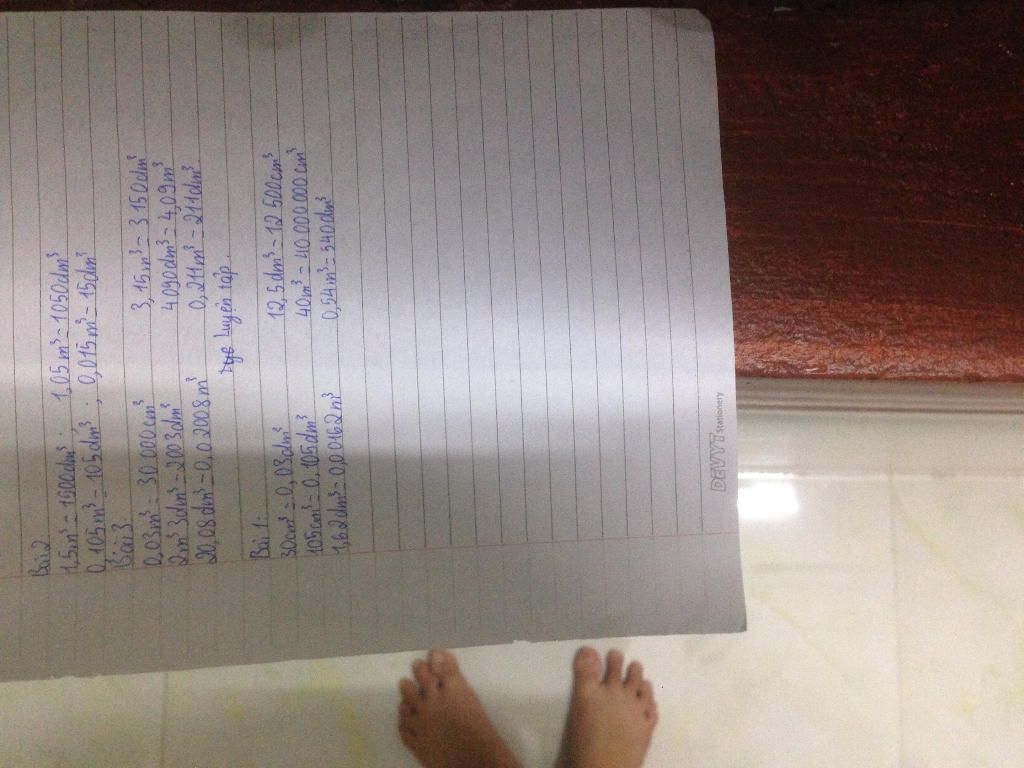 Bài 2
1,5m³ = 1500dm³ ; 1,05m³ = 1050dm³
0,105m³ = 105dm³ ; 0,015m³ = 15dm³
Bài 3
0,03m³ = 30 000cm³ 3,15m³ = 3150dm³
2m³ 3dm³ = 2003dm³ 4090dm³ = 4,09m³
20,08dm³ = 0,02008m³ 0,211m³ = 211dm³
Luyện tập.
Bài 1:
30cm³ = 0,03dm³ 12,5dm³ = 12 500cm³
105cm³ = 0,105dm³ 40m³ = 40 000 000cm³
1,62dm³ = 0,00162m³ 0,54m³ = 540dm³
DEVYT Stationery